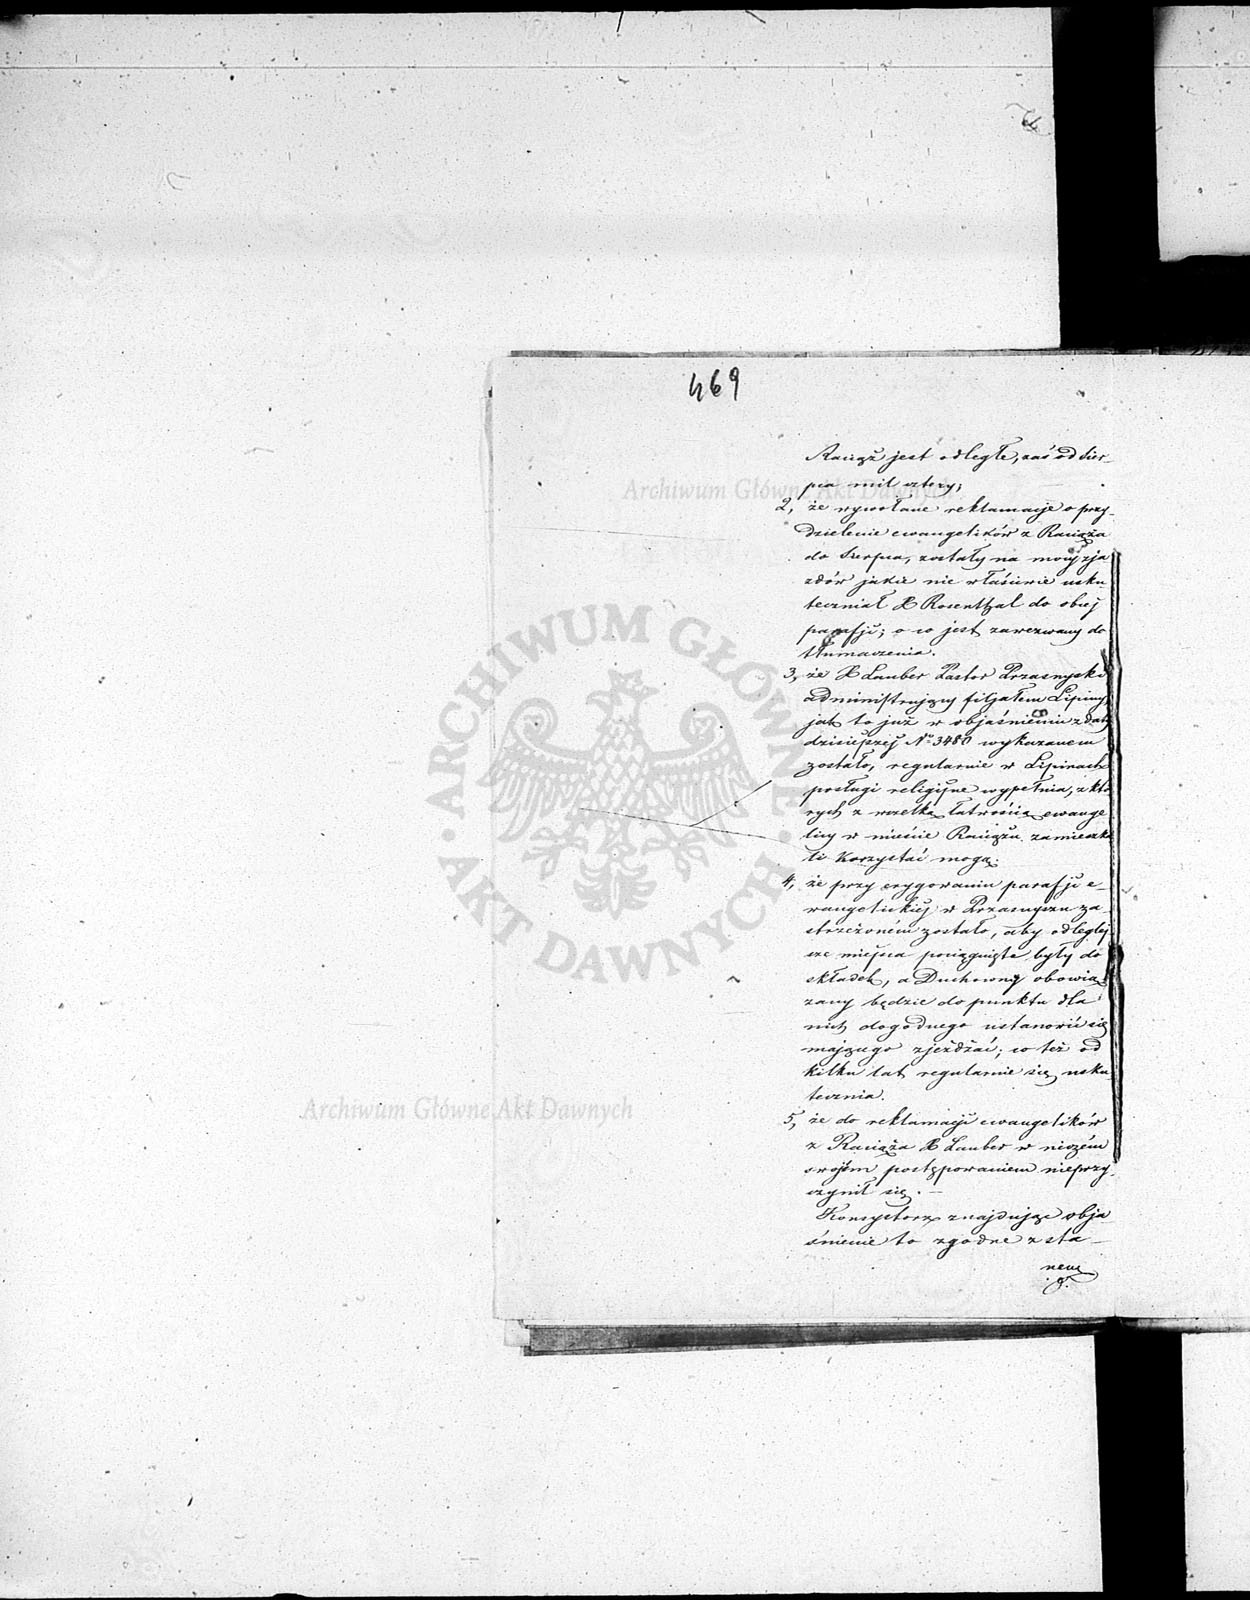 469
Raciąż jest odległe, zaś od Sier-
pca mil cztery;
2, że wywołane reklamacje o przy-
dzielenie ewangelików z Raciąża
do Sierpca, zostały na mocy zja
zdów jakie nie właściwie usku-
teczniał X Rosenthal do obcej
parafji; o co jest zawezwany do
tłumaczenia.
3, że X Lauber Pastor Przasnyski
administrujący filjałem Lipiny,
jak to już w objaśnieniu z daty
dzisiejszej No 3480 wykazanem
zostało, regularnie w Lipinach
posługi religijne wypełnia, z któ
rych z wszelką łatwością ewange
licy w mieście Raciążu zamieszka
li korzystać mogą.
4, że przy erygowaniu parafji e-
wangelickiej w Przasnyszu za-
strzeżoném zostało, aby odleglej
sze miejsca pociągnięte były do
składek, a Duchowny obowią
zany będzie do punktu dla
nich dogodnego ustanowić się
mającego zjeżdżać; co też od
kilku lat regularnie się usku
tecznia.
5, że do reklamacji ewangelików
z Raciąża X Lauber w niczém
swojém postępowaniem nieprzy
czynił się. –
Konsystorz znajdując obja
śnienie to zgodne z sta–
nem
Archiwum Główne Akt Dawnych
ARCHIWUM GŁÓWNE
AKT DAWNYCH
Archiwum Główne Akt Dawnych